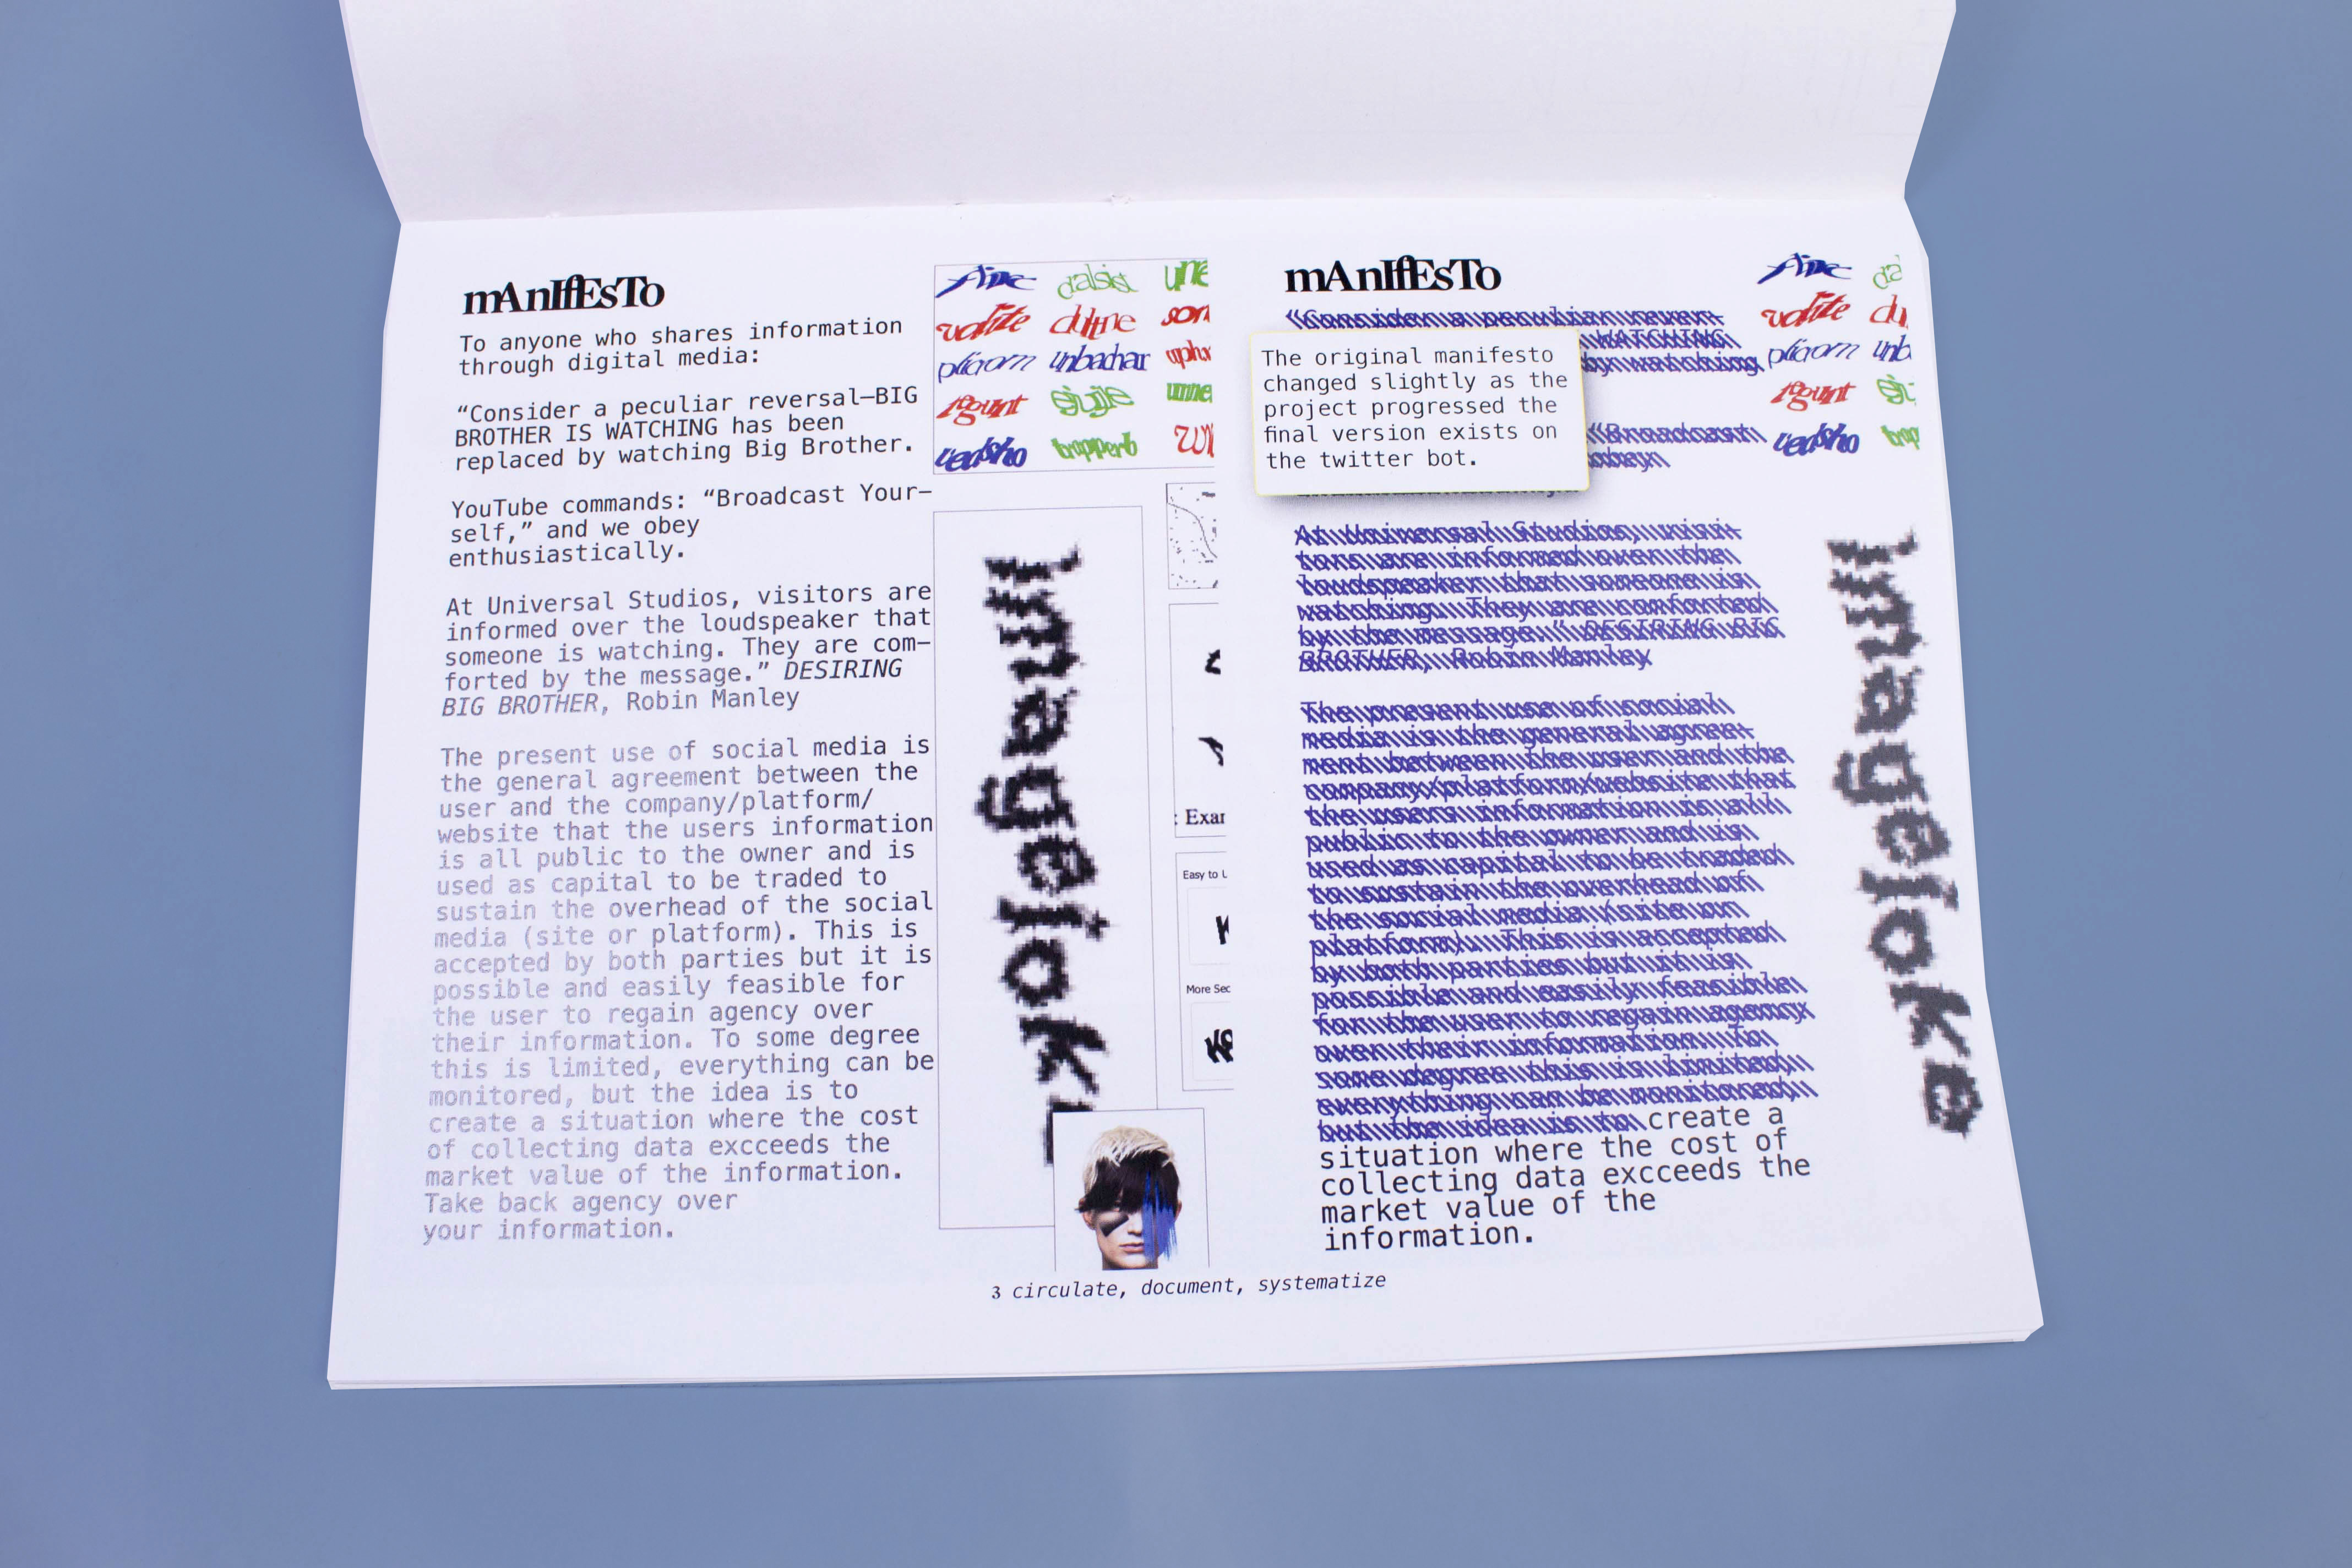 mAnIfEsTo
To anyone who shares information
through digital media:
“Consider a peculiar reversal—BIG
BROTHER IS WATCHING has been
replaced by watching Big Brother.
YouTube commands: “Broadcast Your-
self,” and we obey
enthusiastically.
At Universal Studios, visitors are
informed over the loudspeaker that
someone is watching. They are com-
forted by the message.” DESIRING
BIG BROTHER, Robin Manley
The present use of social media is
the general agreement between the
user and the company/platform/
website that the users information
is all public to the owner and is
used as capital to be traded to
sustain the overhead of the social
media (site or platform). This is
accepted by both parties but it is
possible and easily feasible for
the user to regain agency over
their information. To some degree
this is limited, everything can be
monitored, but the idea is to
create a situation where the cost
of collecting data excceeds the
market value of the information.
Take back agency over
your information.
volite
pligorn unbachar
imagejok
: Exar
Easy to U
More Sec
mAnIfEsTo
“Consider a peculiar rever-
WATCHING
by watching
The original manifesto
changed slightly as the
project progressed the
final version exists on
the twitter bot.
“Broadcast
At Universal Studios, visit-
tors are informed over the
loudspeaker that someone is
watching. They are comforted
by the message.” DESIRING BIG
BROTHER, Robin Manley
The present use of social
media is the general agree-
ment between the user and the
company/platform/website that
the users information is all
public to the owner and is
used as capital to be traded
to sustain the overhead of
the social media (site or
platform). This is accepted
by both parties but it is
possible and easily feasible
for the user to regain agency
over their information. To
some degree this is limited,
everything can be monitored,
but the idea is to create a
situation where the cost of
collecting data excceeds the
market value of the
information.
volite
pligorn
imagejoke
3 circulate, document, systematize